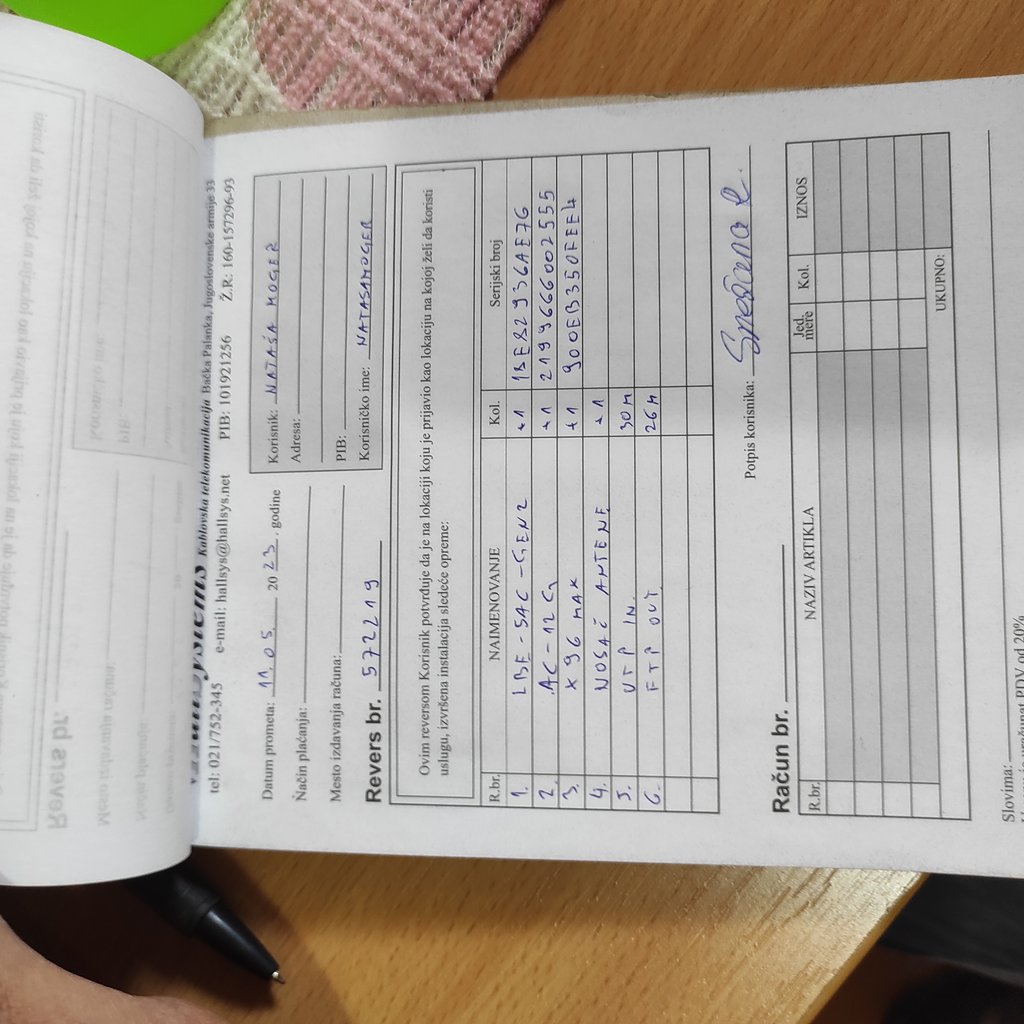 Kablovska telekomunikacija Bačka Palanka, Jugoslovenske armije 33
tel: 021/752-345 e-mail: hallsys@hallsys.net PIB: 101921256 Ž.R: 160-157296-93
Datum prometa: 11.05. 2023. godine
Način plaćanja:
Mesto izdavanja računa:
Revers br. 572219
Korisnik: NATAŠA MOGER
Adresa:
PIB:
Korisničko ime: NATASAMOGER
Ovim reversom Korisnik potvrđuje da je na lokaciji koju je prijavio kao lokaciju na kojoj želi da koristi
uslugu, izvršena instalacija sledeće opreme:
R.br. NAIMENOVANJE Kol. Serijski broj
1. LBE-5AC-GEN2 +1 1BEB2936AE7G
2. AC-12G +1 2199666002555
3. X96 MAX +1 900EB350FEF4
4. NOSAČ ANTENE +1
5. UTP IN. 30M
6. FTP OUT. 26M
Potpis korisnika:
Račun br.
R.br. NAZIV ARTIKLA Jed. mere Kol. IZNOS
UKUPNO:
Slovima:
uračunat PDV od 20%